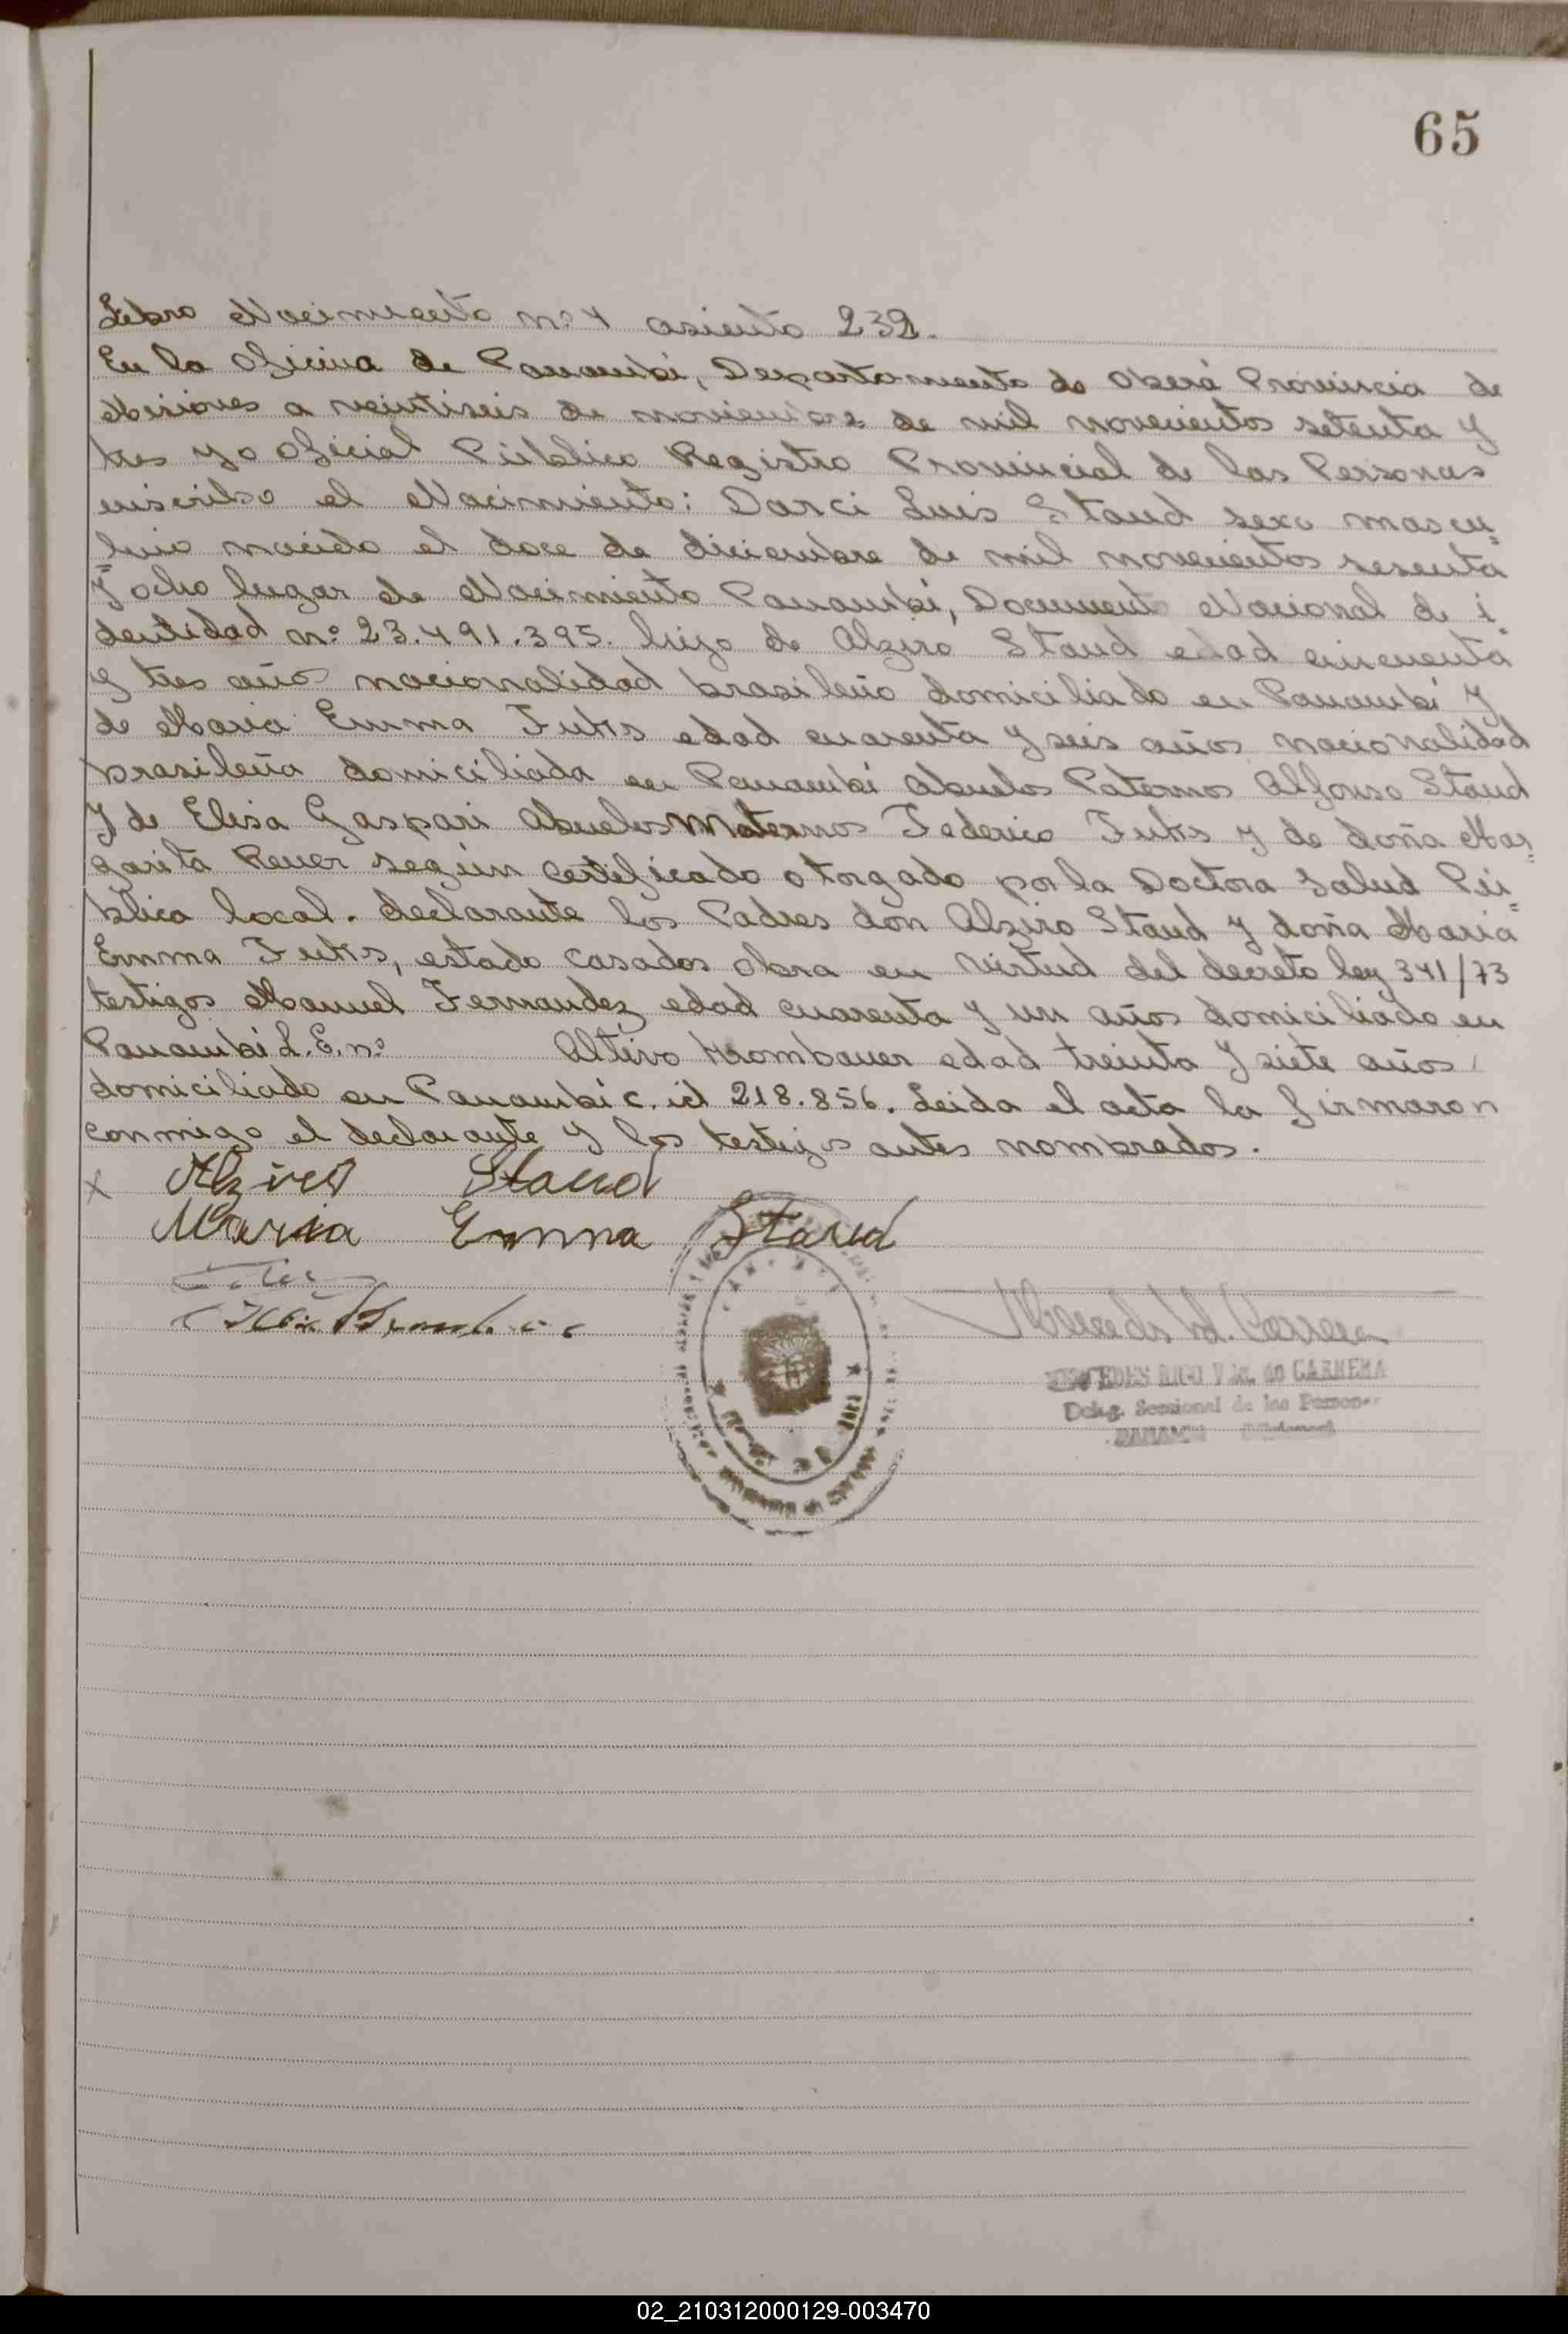 65
Libro Nacimiento nº 4 asiento 232.
En la Oficina de Panambi, Departamento de Oberá Provincia de
Misiones a veintiseis de noviembre de mil novecientos setenta y
tres yo Oficial Público Registro Provincial de las Personas
inscribo el Nacimiento: Darci Luis Staud sexo mascu=
lino nacido el doce de diciembre de mil novecientos sesenta
y ocho lugar de Nacimiento Panambi, Documento Nacional de i=
dentidad nº 23.491.395. hijo de Alziro Staud edad cincuenta
y tres años nacionalidad brasileño domiciliado en Panambi y
de Maria Emma Fuhs edad cuarenta y seis años nacionalidad
brasileña domiciliada en Panambi Abuelos Paternos Alfonso Staud
y de Elisa Gaspari Abuelos Maternos Federico Fuhs y de doña Mar=
garita Reuer según certificado otorgado por la Doctora Salud Pú=
blica local. declarante los Padres don Alziro Staud y doña Maria
Emma Fuhs, estado casados obra en virtud del decreto ley 341/73
testigos Manuel Fernandez edad cuarenta y un años domiciliado en
Panambi L.E. nº Altivo Krombauer edad treinta y siete años
domiciliado en Panambi c. id 218.856. Leida el acta la firmaron
conmigo el declarante y los testigos antes nombrados.
x Alziro Staud
Maria Emma Staud
MERCEDES RICO Vda. de CARRERA
Deleg. Seccional de las Personas
PANAMBI (Misiones)
02_210312000129-003470